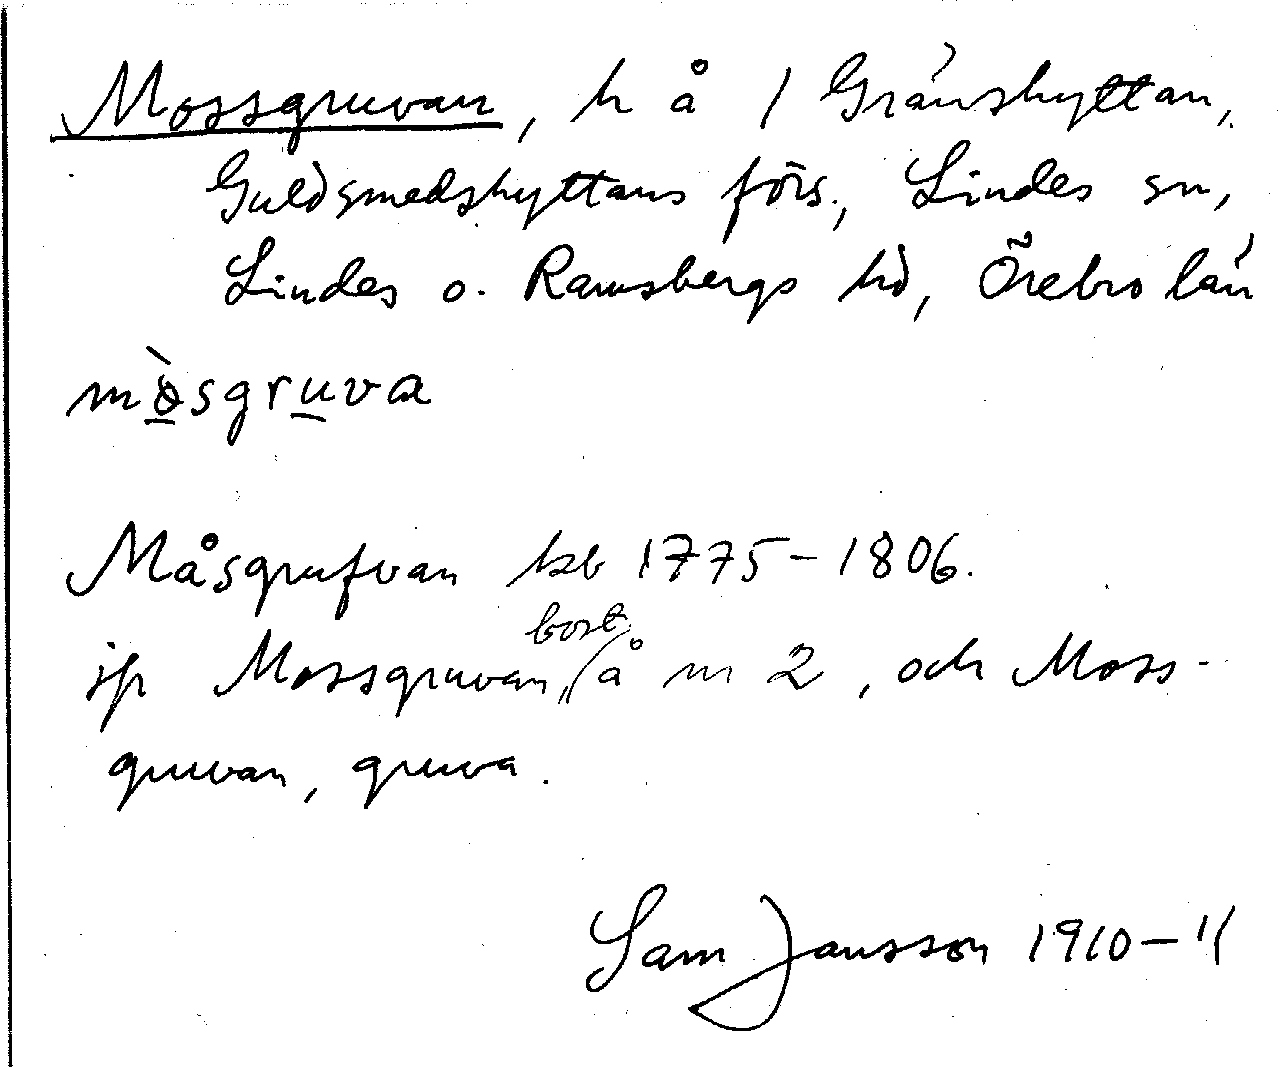 Mossgruvan, h å 1 Gränshyttan,
Guldsmedshyttans förs., Lindes sn,
Lindes o. Ramsbergs hd, Örebro län
mòsgruva
Måsgrufvan kb 1775-1806.
jfr Mossgruvan, bost. å nr 2, och Moss-
gruvan, gruva.
Sam Jansson 1910-11